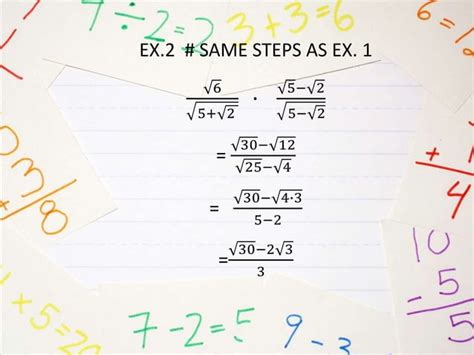 7÷2=
3+3=6
6=
EX.2 # SAME STEPS AS EX. 1
√6/√(5+√2) · √(5−√2)/√(5−√2)
= (√30−√12)/(√25−√4)
= (√30−√(4·3))/(5−2)
=(√30−2√3)/3
03/8
+1
4
10
-5
5
+5=20
7-2=5
9-3